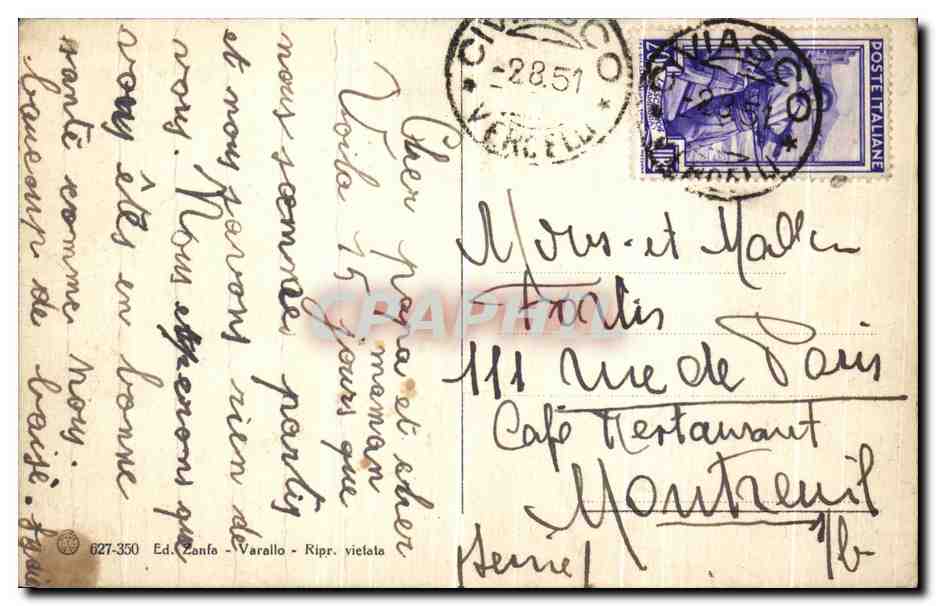 Cher papa et cher
maman
Voila 15 jours que
nous somme partis
et nous savons rien de
vous. Nous esperons que
vous êtes en bonne
santé comme nous.
beaucoup de baisé.
CIVIASCO
-2.8.51
* VERCELLI *
POSTE ITALIANE
CIVIASCO
* VERCELLI *
Mous et Madam
111 rue de Paris
Café Restaurant
Montreuil
s/b
(Seine)
CPAPHIL
627-350 Ed. Zanfa - Varallo - Ripr. vietata